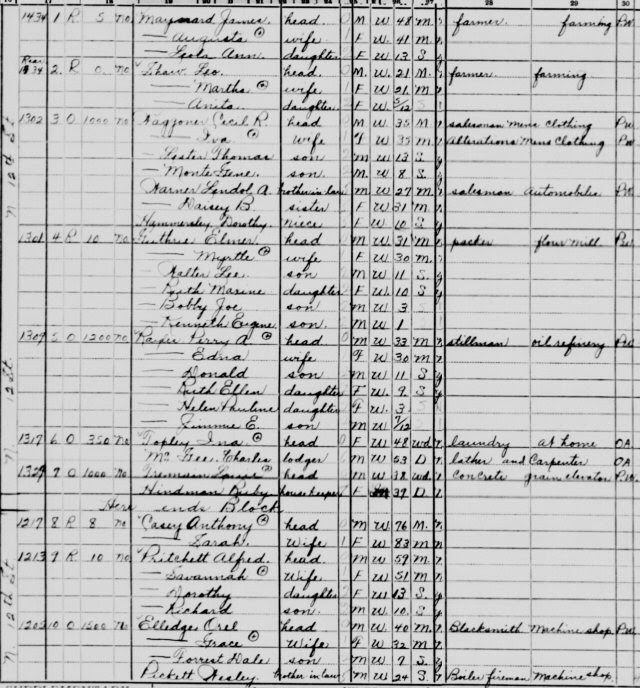 28 29 30
1434 1 R 5 no Maynard James head 0 M W 48 M farmer farming PW
— Augusta wife 1 F W 41 M
— Leola Ann daughter 2 F W 13 S
Rear 1434 2 R 0 no Shaw Leo head 0 M W 21 M farmer farming
— Martha wife 1 F W 21 M
— Anita daughter 2 F W 5/12 S
1302 3 O 1000 no Waggoner Cecil R. head 0 M W 35 M salesman mens clothing PW
— Iva wife 1 F W 35 M alterations mens clothing PW
— Lester Thomas son 2 M W 13 S
— Monte Gene son 2 M W 8 S
Harner Lendol A. brother in law M W 27 M salesman automobile PW
— Daisey B. sister F W 31 M
Dorothy niece F W 10 S
1301 4 R 10 no Guthrie Elmer head 0 M W 31 M packer flour mill PW
— Myrtle wife 1 F W 30 M
— Walter Lee son 2 M W 11 S
— Ruth Maxine daughter 2 F W 10 S
— Bobby Joe son 2 M W 3
— Kenneth Eugene son 2 M W 1
1309 5 O 1200 no Perry A head 0 M W 33 M stillman oil refinery PW
— Edna wife F W 30 M
— Donald son M W 11 S
— Ruth Ellen daughter F W 9 S
— Helen Pauline daughter F W 3
— Jimmie E. son M W 7/12
1317 6 O 350 no Topley Ina head 0 F W 48 Wd laundry at home OA
Mc Gee Charles lodger M W 53 D lather and Carpenter OA
1329 7 O 1000 no head M W 38 Wd concrete grain elevator PW
Hindman Ruby housekeeper F 39 D
Here ends Block
1217 8 R 8 no Casey Anthony head 0 M W 76 M
— Sarah Wife 1 F W 83 M
1213 9 R 10 no Pritchett Alfred head 0 M W 59 M
— Savannah Wife 1 F W 51 M
— Dorothy daughter 2 F W 13 S
— Richard son 2 M W 10 S
1203 10 O 1500 no Elledge Orel head 0 M W 40 M Blacksmith Machine shop PW
— Grace Wife F W 32 M
— Forrest Dale son M W 9 S
Pickett Wesley brother in law M W 24 S Boiler fireman Machine shop.
N 12th St
N 12 St
N 12th St